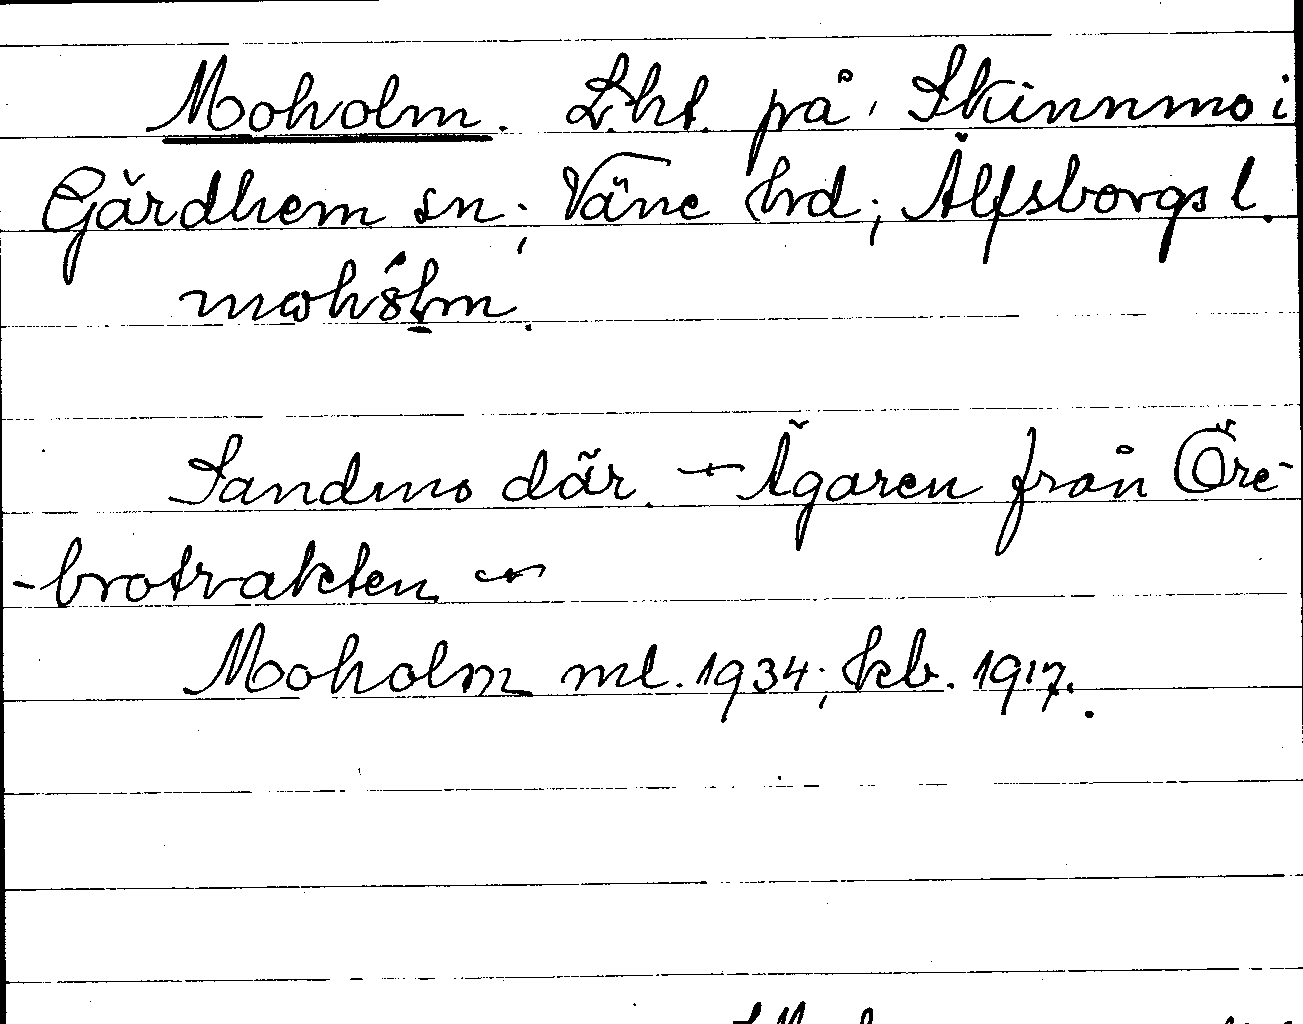 Moholm. L.ht. på Skinnmo i
Gärdhem sn; Väne hrd; Älfsborgs l.
Sandmo där. — Ägaren från Öre-
-brotrakten —
Moholm ml. 1934; kb. 1917.